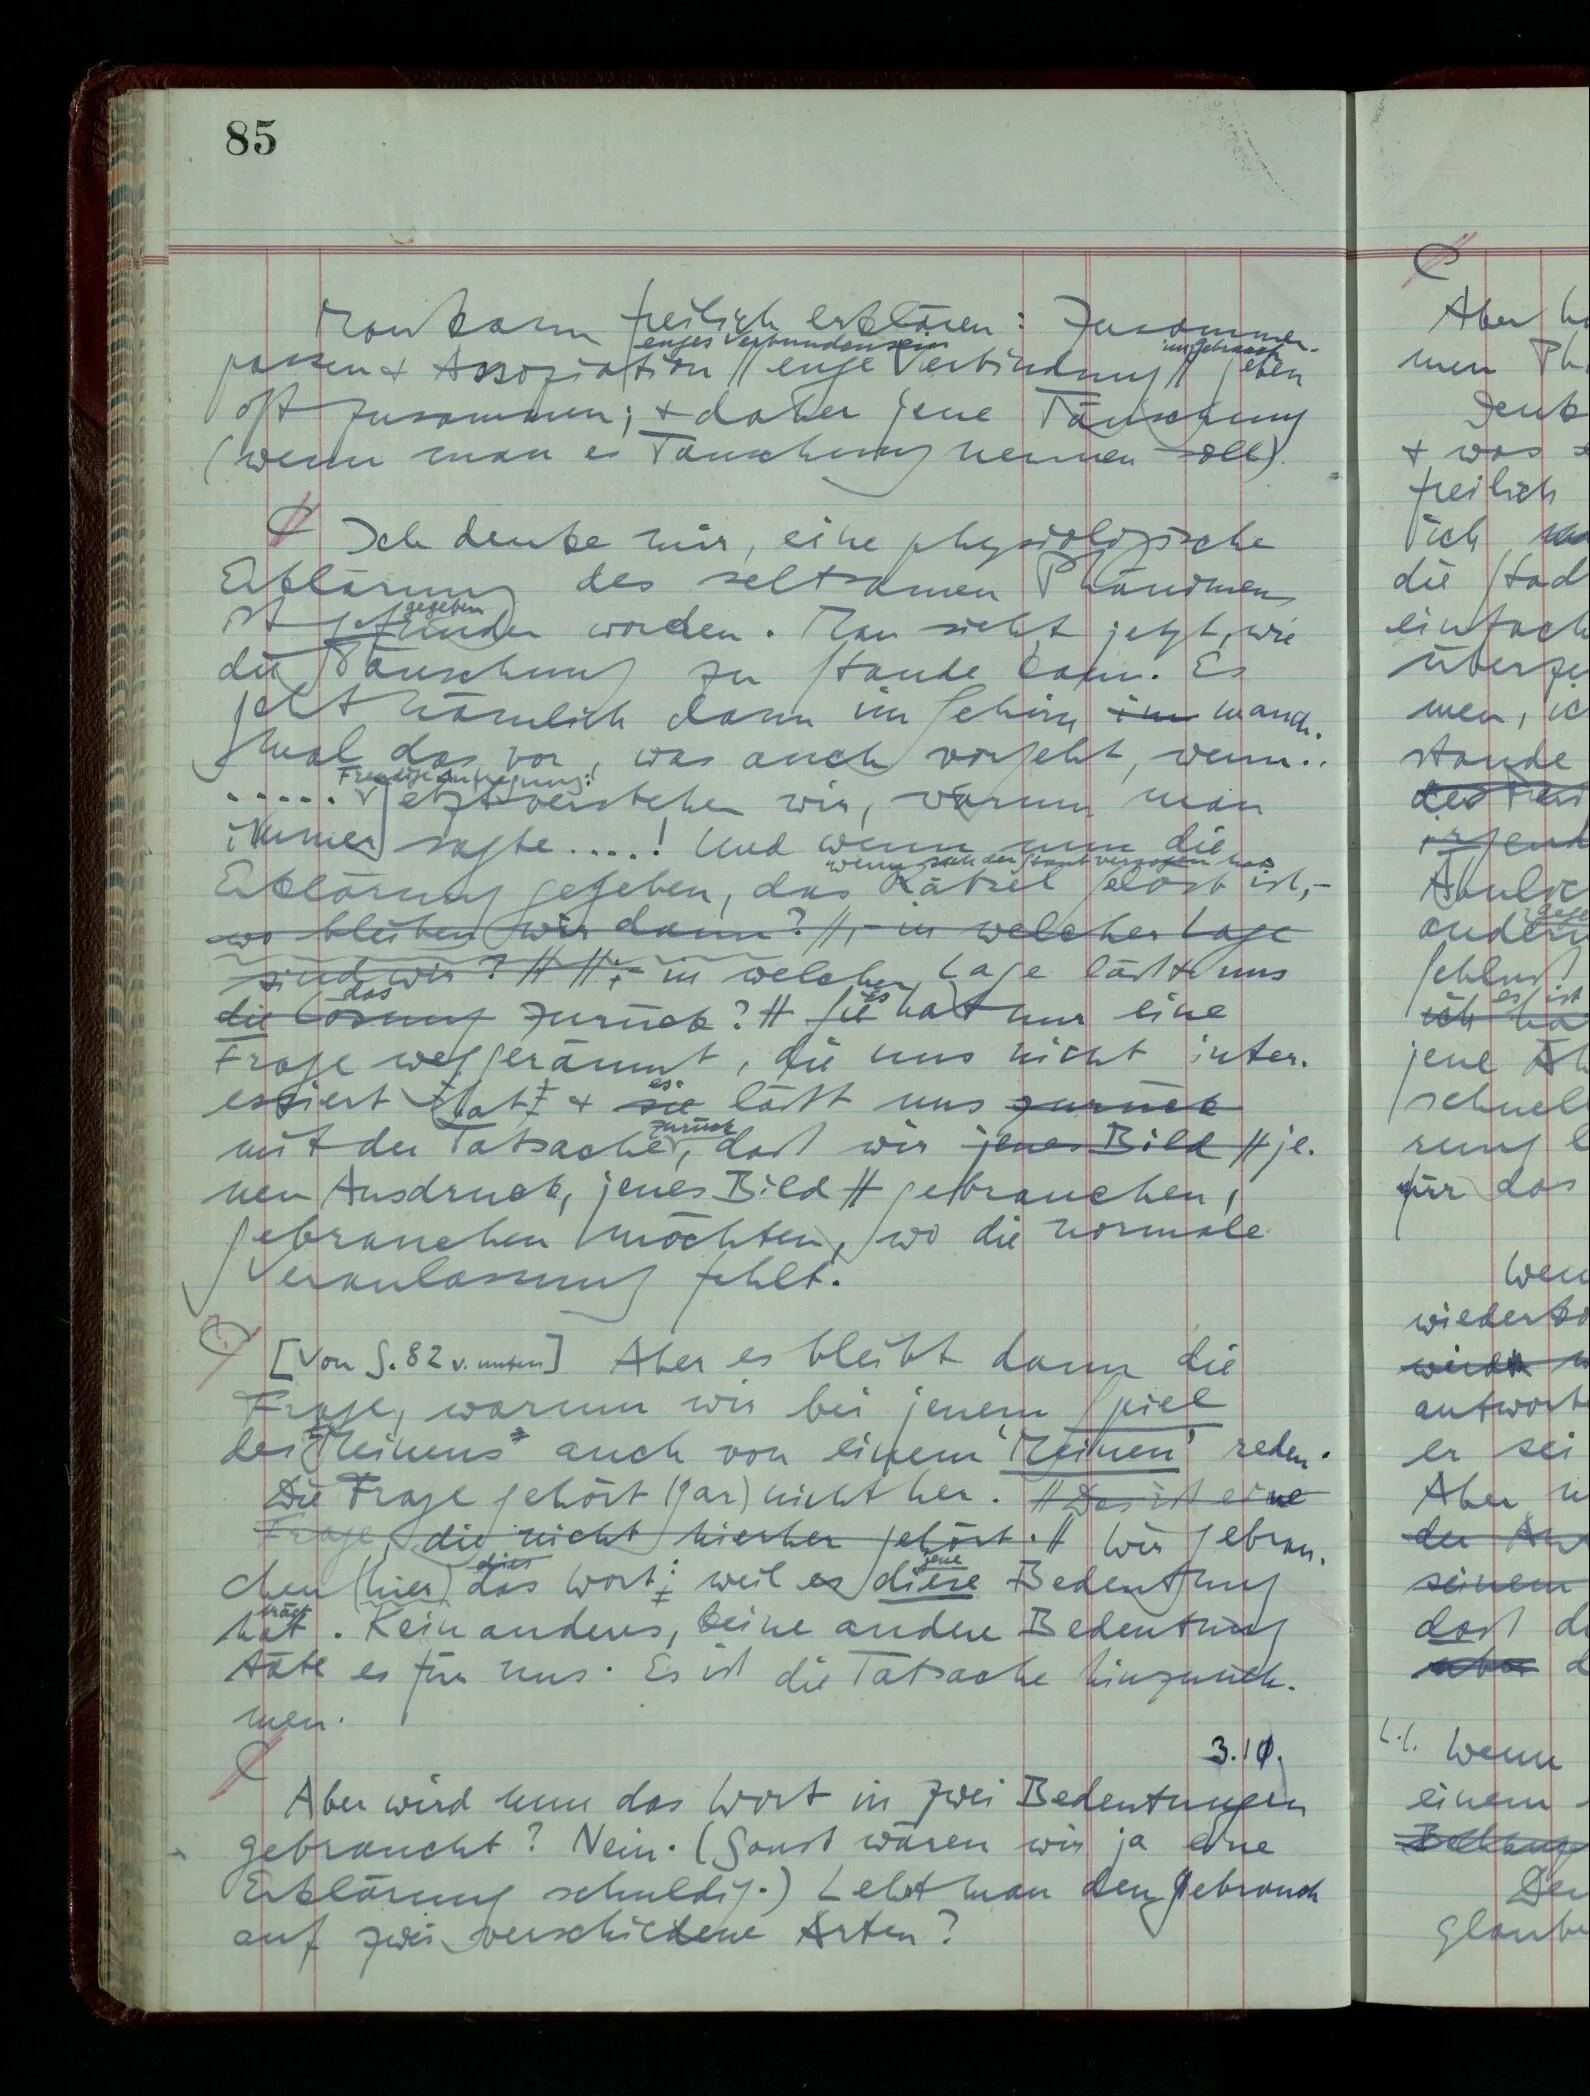 85
Man kann freilich erklären: Zusammen-
enges Verbundensein im Gebrauch
passen & Assoziation // enge Verbindung // gehen
oft zusammen; & daher jene Täuschung
(wenn man es Täuschung nennen soll).
Ich denke mir, eine physiologische
Erklärung des seltsamen Phänomens
gegeben
ist gefunden worden. Man sieht jetzt, wie
die Täuschung zu Stande kam. Es
geht nämlich dann im Gehirn im manch-
mal das vor, was auch vorgeht, wenn..
Freudige Aufregung:
..... Jetzt verstehen wir, warum man
immer sagte.....! Und wenn nun die
wenn sich der Staub verzogen hat
Erklärung gegeben, das Rätsel gelöst ist, –
wo bleiben wir dann? //, – in welcher Lage
sind wir? // // – in welcher Lage läßt uns
das es
die Lösung zurück? // Sie hat nur eine
Frage weggeräumt, die uns nicht inter-
es
essiert hat & sie läßt uns zurück
zurück
mit der Tatsache, daß wir jenes Bild // je-
nen Ausdruck, jenes Bild // gebrauchen,
gebrauchen möchten, wo die normale
Veranlassung fehlt.
[Von S. 82 v. unten] Aber es bleibt dann die
Frage, warum wir bei jenem Spiel
des 'Meinens' auch von einem 'Meinen' reden.
Die Frage gehört (gar) nicht her. // Das ist eine
Frage, die nicht hierher gehört. // Wir gebrau-
dies jene
chen (hier) das Wort: weil es diese Bedeutung
trägt
hat. Kein anderes, keine andere Bedeutung
täte es für uns. Es ist die Tatsache hinzuneh-
men.
3.10.
Aber wird nun das Wort in zwei Bedeutungen
gebraucht? Nein. (Sonst wären wir ja eine
Erklärung schuldig.) Lehrt man den Gebrauch
auf zwei verschiedene Arten?
Aber
men
Denk
& was
freilich
ich
die
einfach
men, ic
stande
jene
schnell
rung
für das
Wen
antwort
er sei
Aber
daß
Wenn
einem
glaube